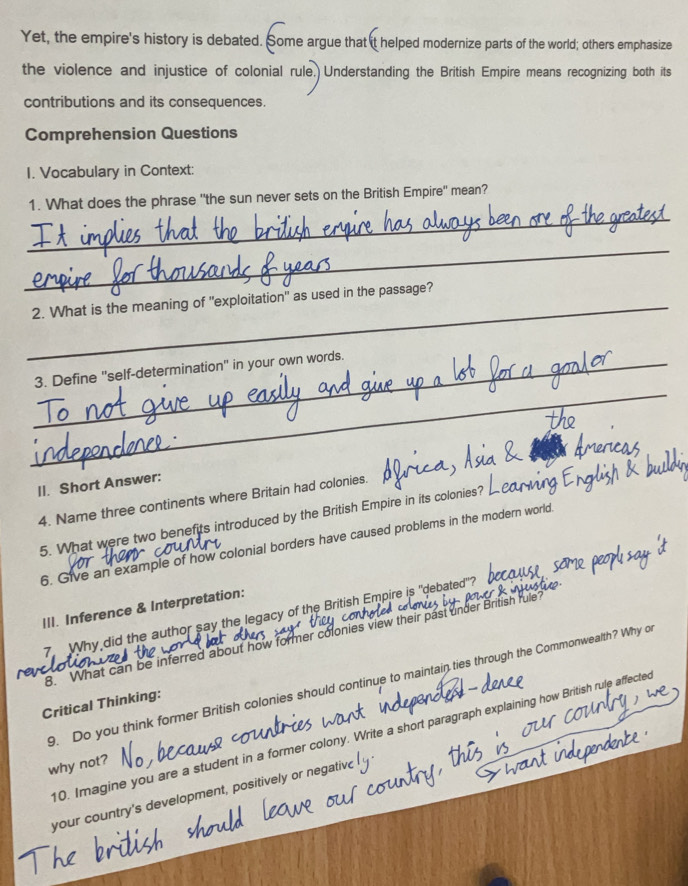 Yet, the empire's history is debated. Some argue that it helped modernize parts of the world; others emphasize
the violence and injustice of colonial rule. Understanding the British Empire means recognizing both its
contributions and its consequences.
Comprehension Questions
I. Vocabulary in Context:
1. What does the phrase "the sun never sets on the British Empire" mean?
It implies that the british empire has always been one of the greatest
empire for thousands of years
2. What is the meaning of "exploitation" as used in the passage?
3. Define "self-determination" in your own words.
To not give up easily and give up a lot for a goal or
independence.
II. Short Answer:
4. Name three continents where Britain had colonies. Africa, Asia & the Americas
5. What were two benefits introduced by the British Empire in its colonies? Learning English & building
for there country
6. Give an example of how colonial borders have caused problems in the modern world.
III. Inference & Interpretation:
7. Why did the author say the legacy of the British Empire is "debated"? because, some people say it
revolutionized the world but others says they controled colonies by power & injustice.
8. What can be inferred about how former colonies view their past under British rule?
Critical Thinking:
9. Do you think former British colonies should continue to maintain ties through the Commonwealth? Why or
why not? No, because countries want independent-dence
10. Imagine you are a student in a former colony. Write a short paragraph explaining how British rule affected
your country's development, positively or negatively.
The british should leave our country, this is our country, we
want independence.